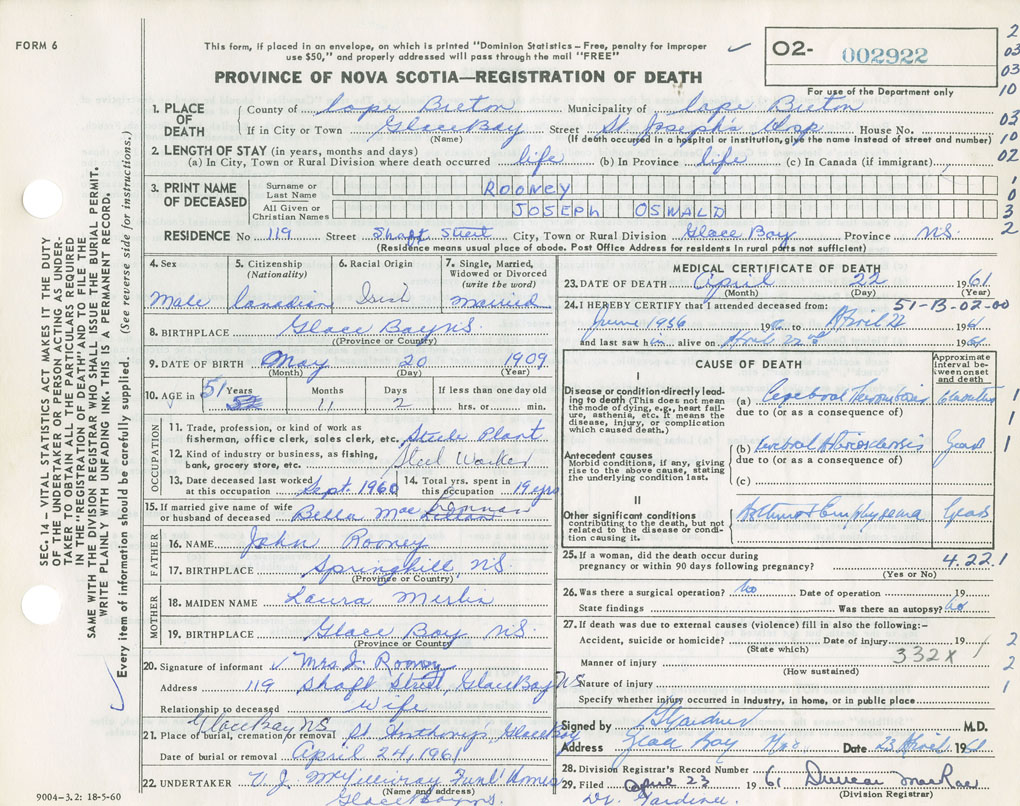 FORM 6
This form, if placed in an envelope, on which is printed "Dominion Statistics - Free, penalty for improper
use $50," and properly addressed will pass through the mail "FREE"
PROVINCE OF NOVA SCOTIA—REGISTRATION OF DEATH
O2- 002922
For use of the Department only
2
03
03
10
03
10
02
1
0
3
2
SEC. 14 - VITAL STATISTICS ACT MAKES IT THE DUTY
OF THE UNDERTAKER OR PERSON ACTING AS UNDER-
TAKER TO OBTAIN ALL THE PARTICULARS REQUIRED
IN THE "REGISTRATION OF DEATH" AND TO FILE THE
SAME WITH THE DIVISION REGISTRAR WHO SHALL ISSUE THE BURIAL PERMIT.
WRITE PLAINLY WITH UNFADING INK. THIS IS A PERMANENT RECORD.
Every item of information should be carefully supplied. (See reverse side for instructions.)
1. PLACE OF DEATH
County of Cape Breton Municipality of Cape Breton
If in City or Town Glace Bay Street St Joseph's Hosp House No.
(Name) (If death occurred in a hospital or institution, give the name instead of street and number)
2. LENGTH OF STAY (in years, months and days)
(a) In City, Town or Rural Division where death occurred life (b) In Province life (c) In Canada (if immigrant)
3. PRINT NAME OF DECEASED
Surname or Last Name ROONEY
All Given or Christian Names JOSEPH OSWALD
RESIDENCE No 119 Street Shaft Street City, Town or Rural Division Glace Bay Province N.S.
(Residence means usual place of abode. Post Office Address for residents in rural parts not sufficient)
4. Sex Male
5. Citizenship (Nationality) Canadian
6. Racial Origin Irish
7. Single, Married, Widowed or Divorced (write the word) Married
8. BIRTHPLACE Glace Bay NS
(Province or Country)
9. DATE OF BIRTH May 20 1909
(Month) (Day) (Year)
10. AGE in 51 Years 52 Months 11 Days 2 If less than one day old
hrs. or min.
OCCUPATION
11. Trade, profession, or kind of work as
fisherman, office clerk, sales clerk, etc. Steel Plant
12. Kind of industry or business, as fishing,
bank, grocery store, etc. Steel Worker
13. Date deceased last worked
at this occupation Sept. 1960
14. Total yrs. spent in
this occupation 19 yrs
15. If married give name of wife
or husband of deceased Bella Mac
FATHER
16. NAME John Rooney
17. BIRTHPLACE Springhill, NS.
(Province or Country)
MOTHER
18. MAIDEN NAME Laura Merlin
19. BIRTHPLACE Glace Bay NS.
(Province or Country)
20. Signature of informant Mrs. J. Rooney
Address 119 Shaft Street, Glace Bay NS
Relationship to deceased Wife
Glace Bay N.S.
21. Place of burial, cremation or removal St. Anthony's, Glace Bay
Date of burial or removal April 24, 1961
22. UNDERTAKER V. J. McGillivray Funl Home
(Name and address)
Glace Bay NS.
9004-3.2: 18-5-60
MEDICAL CERTIFICATE OF DEATH
23. DATE OF DEATH April 22 1961
(Month) (Day) (Year)
24. I HEREBY CERTIFY that I attended deceased from: 51-B-02-00
June 1956 19 to April 22 1961
and last saw him alive on April 22 1961
CAUSE OF DEATH
Approximate interval between onset and death
I
Disease or condition directly leading to death (This does not mean the mode of dying, e.g., heart failure, asthenia, etc. It means the disease, injury, or complication which caused death.)
(a) Cerebral Thrombosis
due to (or as a consequence of)
Antecedent causes
Morbid conditions, if any, giving rise to the above cause, stating the underlying condition last.
(b) Cerebral years
due to (or as a consequence of)
(c)
II
Other significant conditions
contributing to the death, but not related to the disease or condition causing it.
Asthma & Emphysema years
1
1
1
25. If a woman, did the death occur during
pregnancy or within 90 days following pregnancy? 4.22.1
(Yes or No)
26. Was there a surgical operation? No Date of operation 19
State findings Was there an autopsy? No
27. If death was due to external causes (violence) fill in also the following:-
Accident, suicide or homicide? Date of injury 19
(State which) 332X 1
Manner of injury
(How sustained)
Nature of injury
Specify whether injury occurred in industry, in home, or in public place
2
2
1
Signed by Gardner M.D.
Address Glace Bay Date 23 April 1961
28. Division Registrar's Record Number
29. Filed April 23 1961 Duncan MacRae
(Division Registrar)
Dr. Gardner.